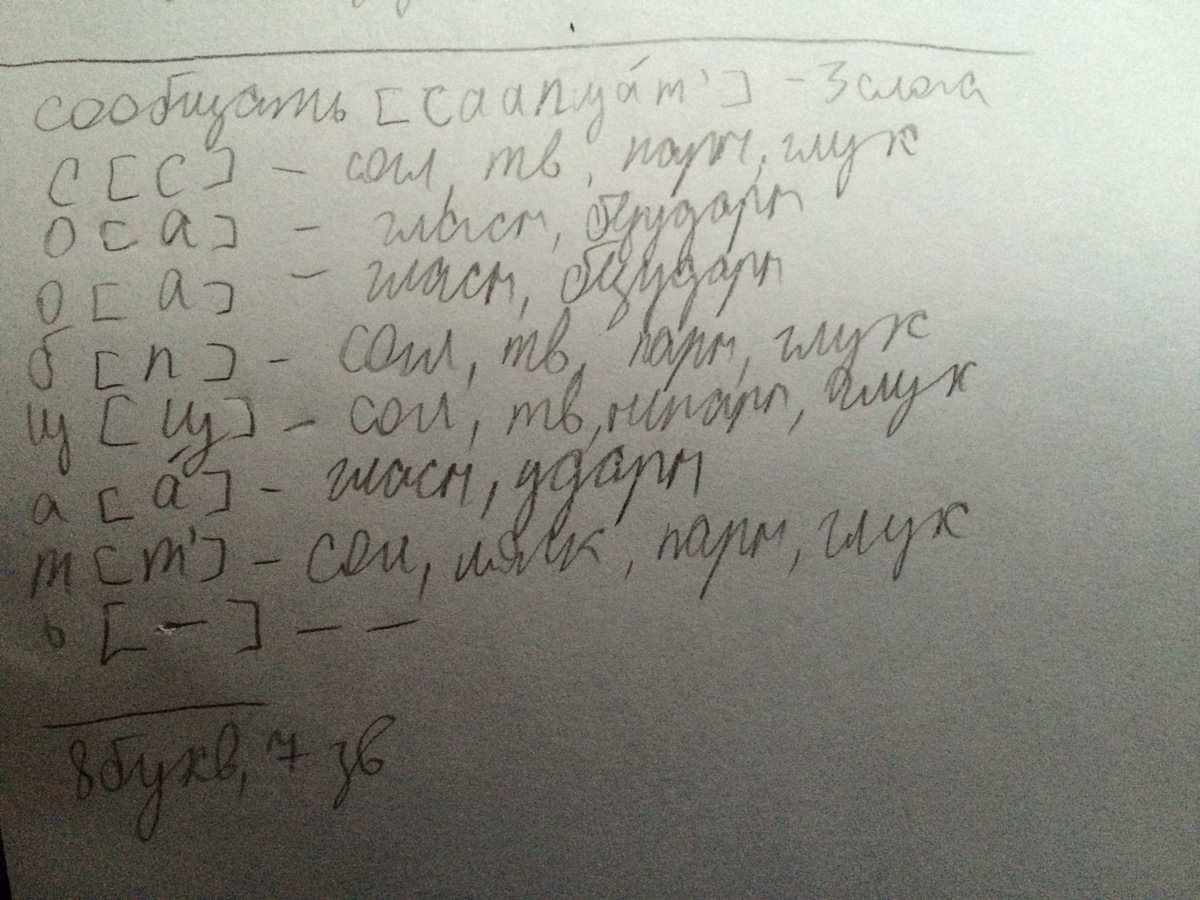 сообщать [саапща́т'] - 3 слога
с [с] - согл, тв, парн, глух
о [а] - гласн, безударн
о [а] - гласн, безударн
б [п] - согл, тв, парн, глух
щ [щ] - согл, тв, непарн, глух
а [а́] - гласн, ударн
т [т'] - согл, мягк, парн, глух
ь [-] - -
8 букв, 7 зв